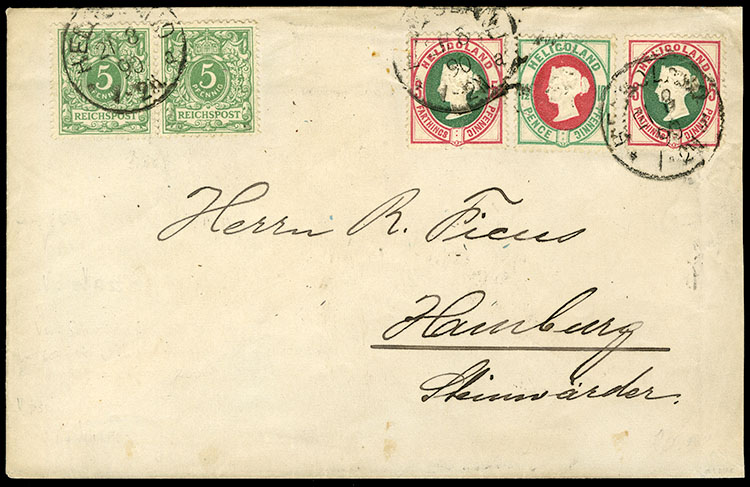 5
PFENNIG
REICHSPOST
5
PFENNIG
REICHSPOST
HELIGOLAND
FARTHINGS
PFENNIG
HELIGOLAND
PENCE
PFENNIG
HELIGOLAND
FARTHINGS
5
PFENNIG
90
90
Herrn R. Ficus
Hamburg
Steinwärder.